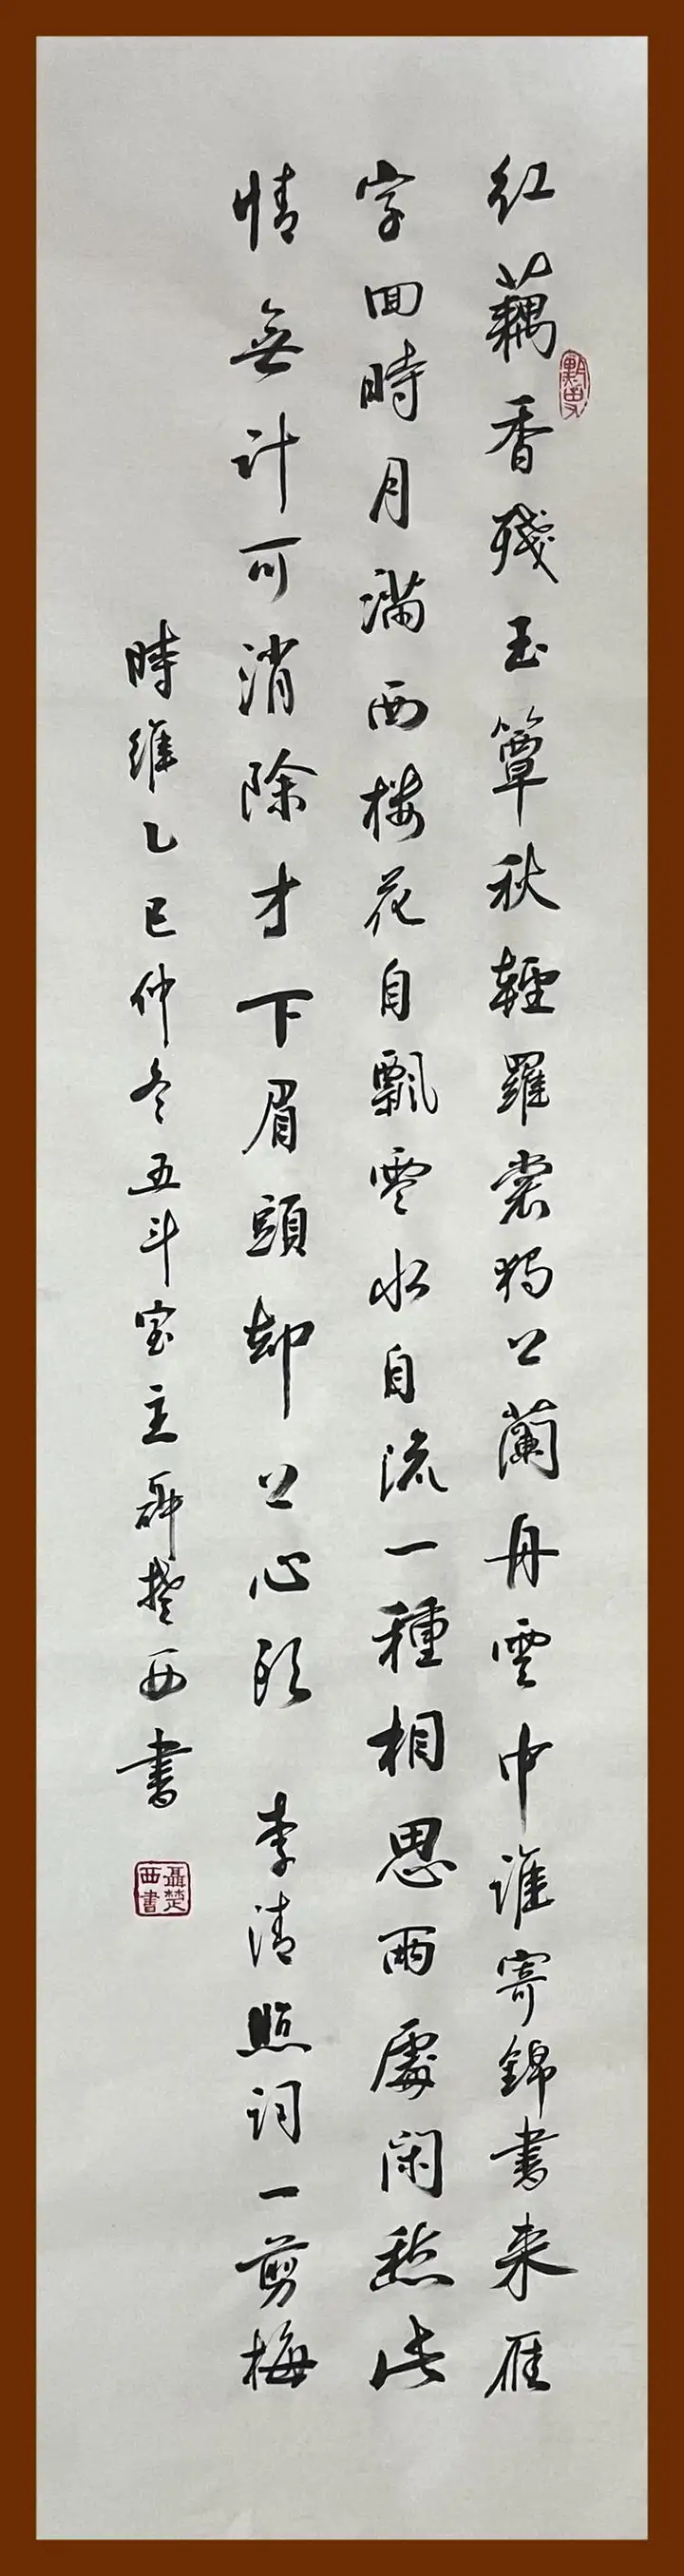 红藕香殘玉簟秋輕羅裳獨上蘭舟雲中誰寄錦書来雁
字回時月滿西楼花自飄零水自流一種相思兩處闲愁此
情無計可消除才下眉頭却上心头 李清照词一剪梅
時維乙巳仲冬五斗室主聶楚西書
聶楚西書